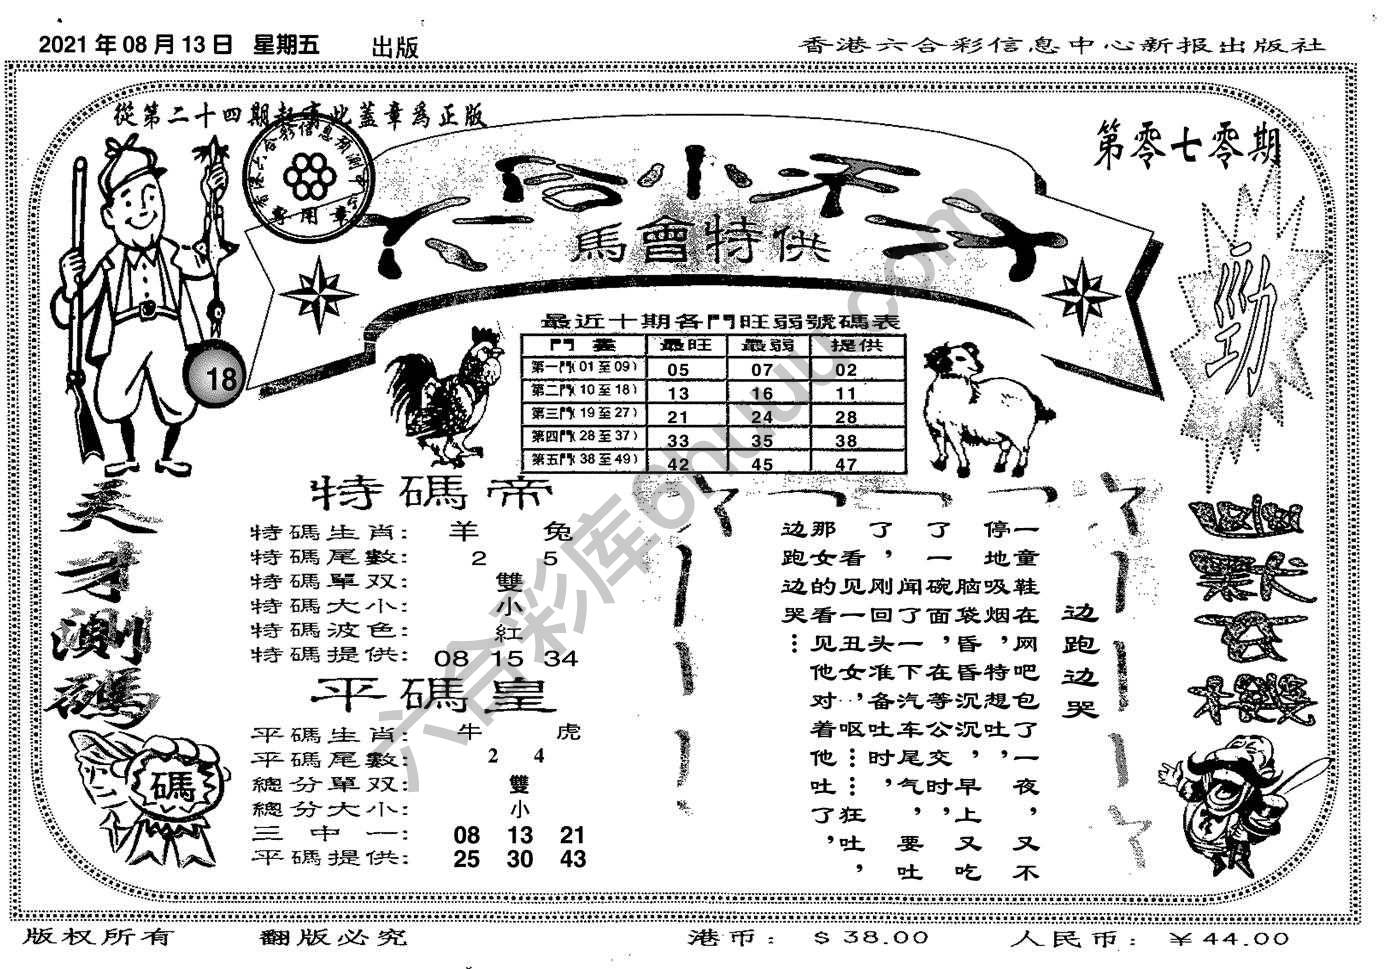 2021 年 08 月 13 日 星期五 出版
香港六合彩信息中心新报出版社
從第二十四期起市此蓋章爲正版
第零七零期
六合小子
馬會特供
專用章
18
勁
最近十期各門旺弱號碼表
門 最旺 最弱 提供
第一門(01 至 09) 05 07 02
第二門(10 至 18) 13 16 11
第三門(19 至 27) 21 24 28
第四門(28 至 37) 33 35 38
第五門(38 至 49) 42 45 47
天才測碼
碼
特碼帝
特碼生肖: 羊 兔
特碼尾數: 2 5
特碼單双: 雙
特碼大小: 小
特碼波色: 紅
特碼提供: 08 15 34
平碼皇
平碼生肖: 牛 虎
平碼尾數: 2 4
總分單双: 雙
總分大小: 小
三中一: 08 13 21
平碼提供: 25 30 43
边跑边哭
一童鞋在网吧包了一夜，又不
停地吸烟，特想吐，早上又吃
了一碗面，在等公交时，
脑袋昏昏沉沉，
了，闻了一下汽车尾气，要吐
了，刚回头准备吐时，
看见一丑女，呕……狂吐，
那女的看见他对着他吐了，
边跑边哭…
版权所有 翻版必究 港币: $ 38.00 人民币: ￥44.00
六合彩库6huuu.com